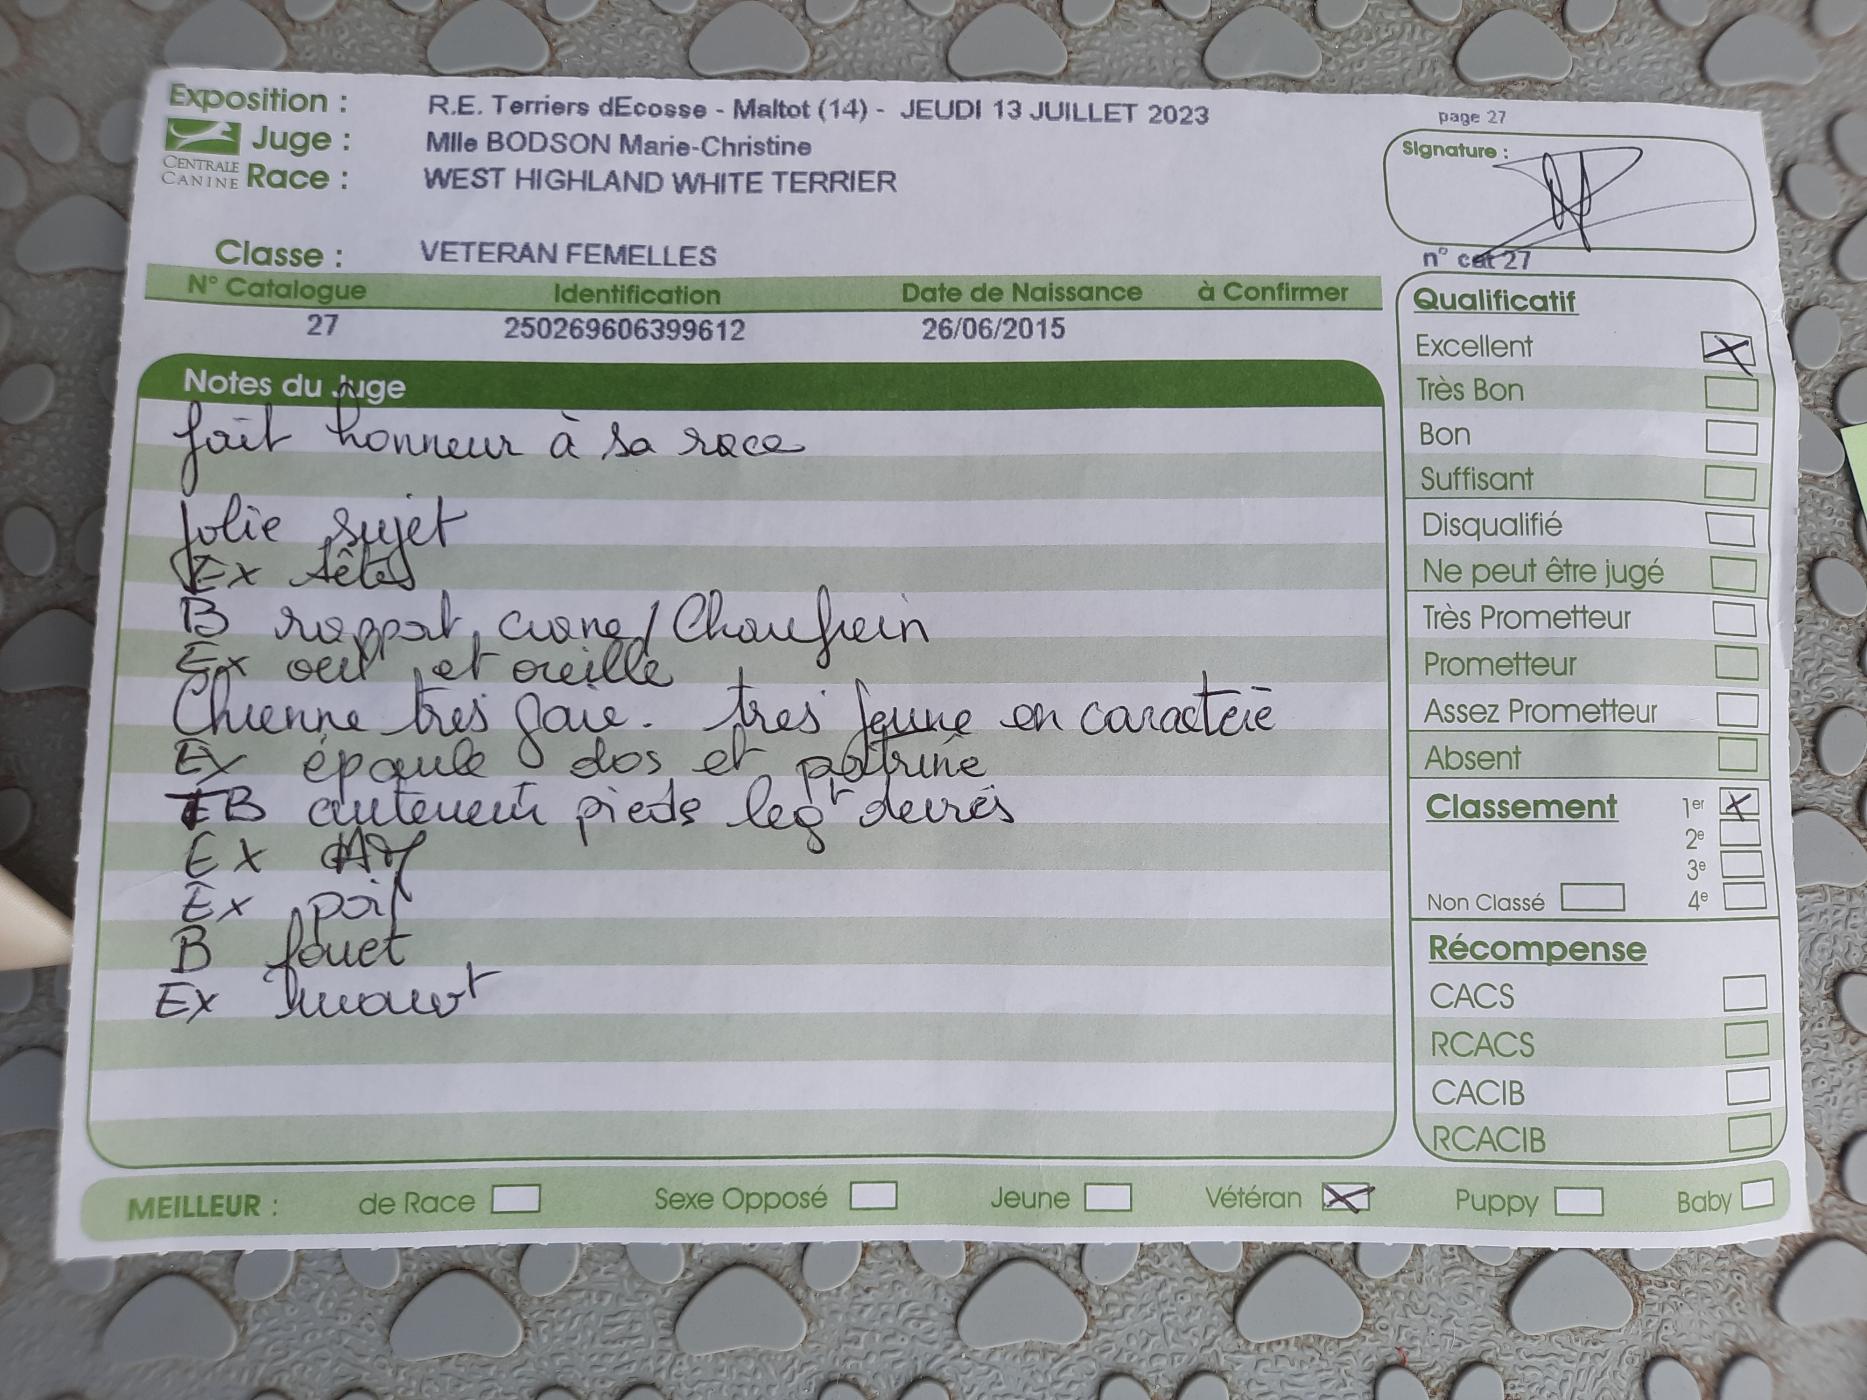 Exposition : R.E. Terriers dEcosse - Maltot (14) - JEUDI 13 JUILLET 2023
page 27
Juge : Mlle BODSON Marie-Christine
CENTRALE CANINE
Race : WEST HIGHLAND WHITE TERRIER
Signature :
Classe : VETERAN FEMELLES
n° cat 27
N° Catalogue Identification Date de Naissance à Confirmer
27 250269606399612 26/06/2015
Notes du Juge
fait honneur à sa race
Jolie sujet
Ex têtes
B rapport crane / Chanfrein
Ex oeil et oreille
Chienne tres gaie. tres jeune en caractère
Ex épaule dos et poitrine
TB pieds legt devrés
Ex
Ex poil
B fouet
Ex
Qualificatif
Excellent
Très Bon
Bon
Suffisant
Disqualifié
Ne peut être jugé
Très Prometteur
Prometteur
Assez Prometteur
Absent
Classement 1er
2e
3e
Non Classé 4e
Récompense
CACS
RCACS
CACIB
RCACIB
MEILLEUR : de Race Sexe Opposé Jeune Vétéran Puppy Baby